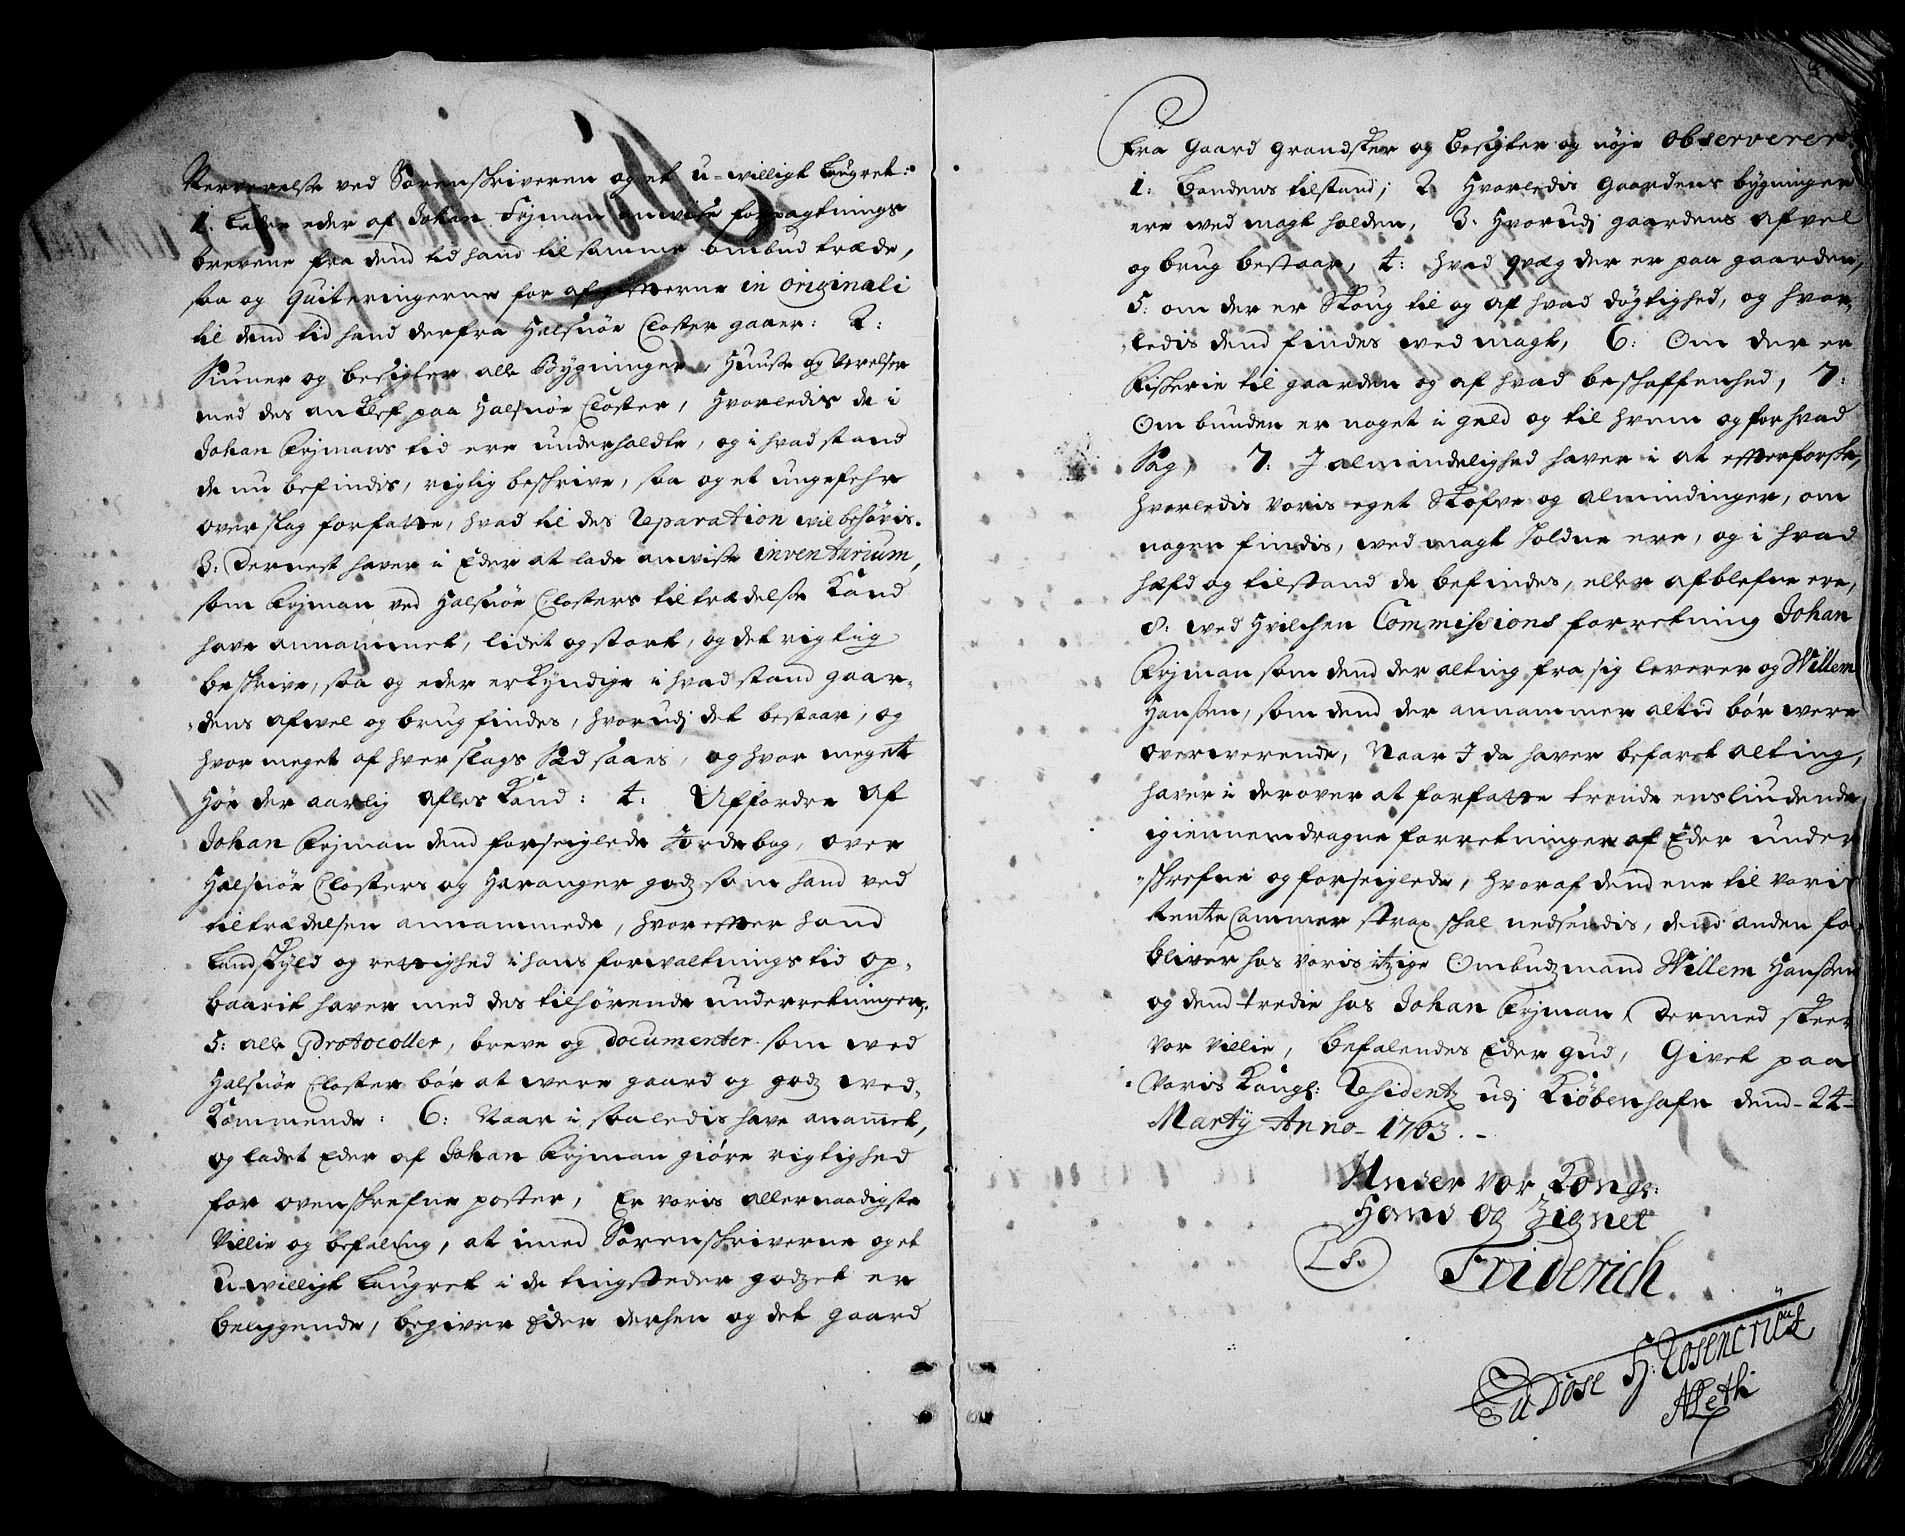 Nerverelse ved Sorenskriveren og et u-willigt Laugret:
1. Lader eder af Johan Frijman anvise forpagtnings
brevene fra dend tid hand til samme ombud træde,
saa og Quiteringerne for afgifterne in originali
til dend tid hand derfra Halsnøe Closter gaaer: 2:
Siuner og besigter alle Bygninger, Huuse og verelser
med des anklef paa Halsnøe Closter, Hvorledis de i
Johan Frijmans tid ere underholdte, og i hvad stand
de nu befindis, rigtig beskrive, saa og et ungefehr
overslag forfatte, hvad til des Reparation vil behøvis.
3: Dernest haver i Eder at lade anwise inventarium,
som Frijman ved Halsnøe Closters tiltrædelse kand
have annammet, lidet og stort, og det rigtig
beskrive, saa og eder erkyndige i hvad stand gaar-
dens afwel og brug findes, hvorudj det bestaar, og
hvor meget af hver slags Sæd saaes, og hvor meget
Høe der aarlig afles kand: 4: Affordre af
Johan Frijman dend forseiglede Jordebog, over
Halsnøe Closters og Haranger godz som hand ved
tiltrædelsen annammede, hvorefter hand
Landskyld og rettighed i hans forvaltnings tid op-
baarit haver med des tilhørende underretninger.
5: alle Protocoller, breve og documenter som wed
Halsnøe Closter bør at were gaard og godz wed-
kommende: 6: Naar i saaledis have anamet,
og ladet Eder af Johan Frijman giøre rigtighed
for ovenskrefne poster, Er voris allernaadigste
Villie og befaling, at i med Sorenskriverne og et
u-willigt Laugret i de tingsteder godzet er
beliggende, begiver Eder derhen og det gaard
fra gaard grandsker og besigter og nøje observerer.
1: Landens tilstand; 2: Hvorledis Gaardens bygninger
ere wed magt holden, 3: Hvorudj gaardens afvel
og brug bestaar, 4: hvad qvæg der er paa gaarden,
5: om der er Skoug til og af hvad døgtighed, og hvor-
ledis dend findes wed magt, 6: Om der er
Fiskerie til gaarden og af hvad beskaffenhed, 7:
Om bunden er noget i geld og til hvem og for hvad
Sag, 7: J almindelighed haver i at efterforske,
hvorledis voris eget Skofve og almindinger, om
nogen findis, wed magt holdne ere, og i hvad
hæfd og tilstand de befindes, eller afblefne ere,
8: wed hvilchen Commissions forretning Johan
Frijman som dend der alting fra sig leverer og Willem
Hansen, som dend der annammer altid bør were
overwerende, Naar I da haver befaret alting,
haver i derover at forfatte trende ensliudende
igiennemdragne forretninger af Eder under
skrefne og forseiglede, hvoraf dend ene til voris
Rente Cammer strax skal nedsendis, dend anden for
bliver hos voris itzige Ombudzmand Willem Hansen
og dend tredie hos Johan Frijman, Dermed skeer
vor villie, Befalendes Eder gud, Givet paa
voris Kongl: Residentz udj Kiøbenhafn dend 24
Martij Anno 1703.
Under vor Kongl:
Hand og Zignet
LS. Friderich
H: Rosencrütz
Eu Dose ALeth